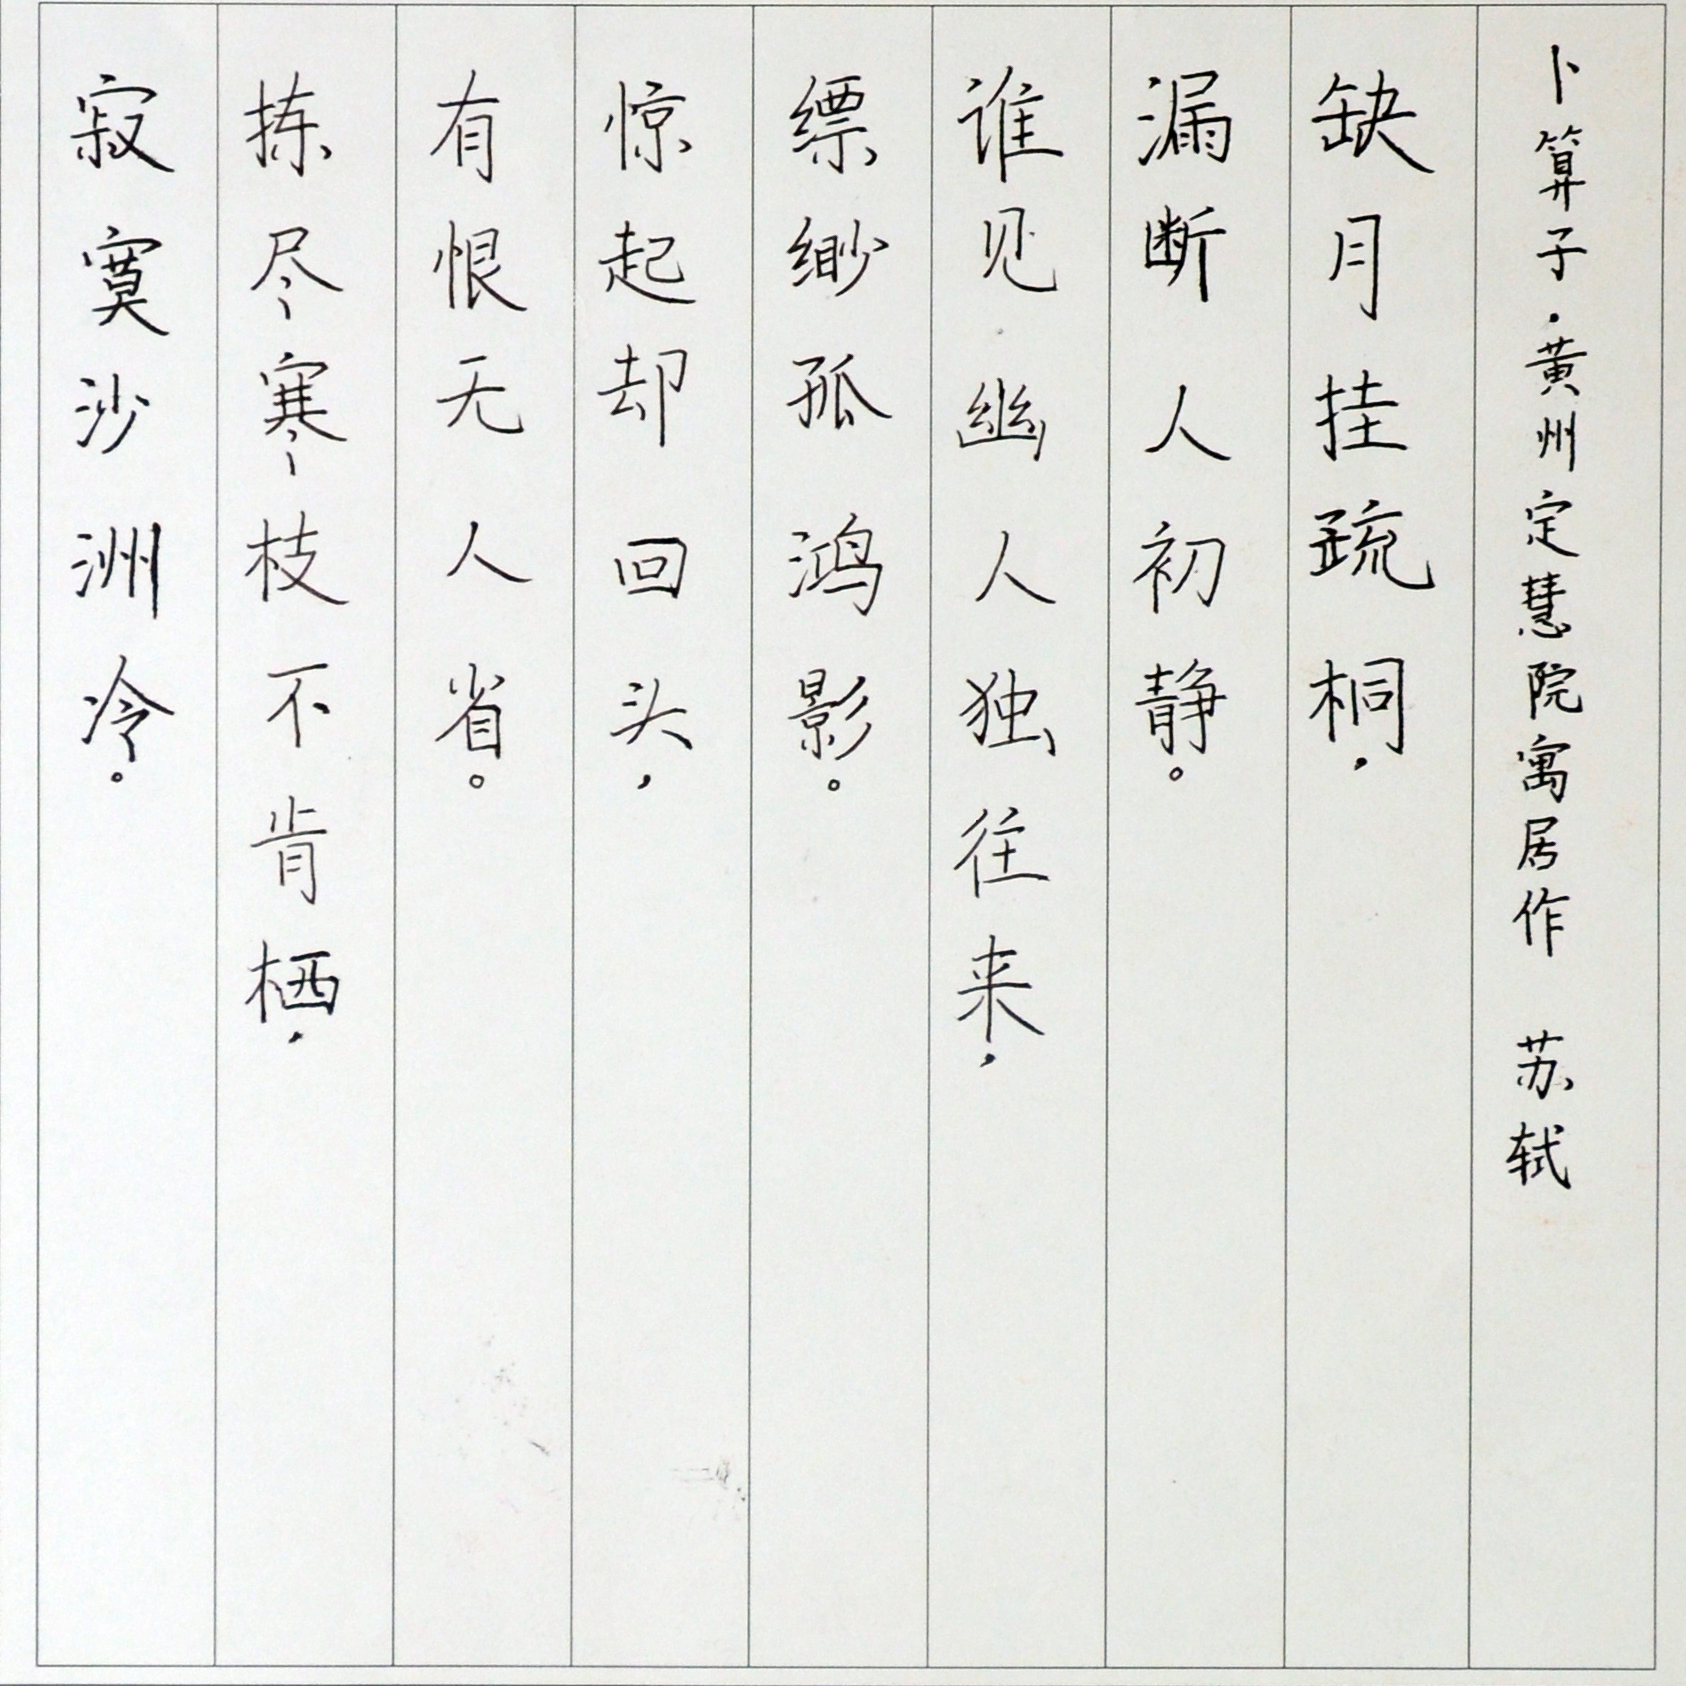 卜算子·黄州定慧院寓居作 苏轼
缺月挂疏桐，
漏断人初静。
谁见幽人独往来，
缥缈孤鸿影。
惊起却回头，
有恨无人省。
拣尽寒枝不肯栖，
寂寞沙洲冷。